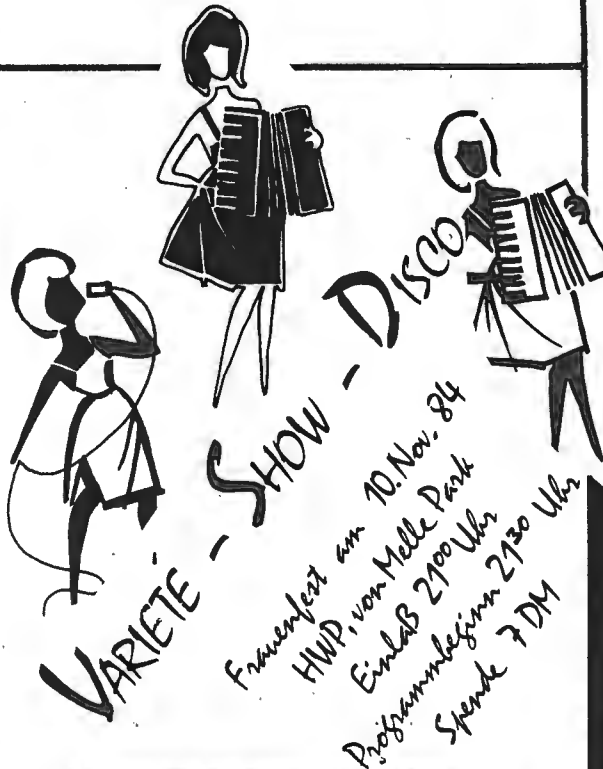 VARIETÉ - SHOW - DISCO
Frauenfest am 10. Nov. 84
HWP, von Melle Park
Einlaß 21⁰⁰ Uhr
Programmbeginn 21³⁰ Uhr
Spende 7 DM